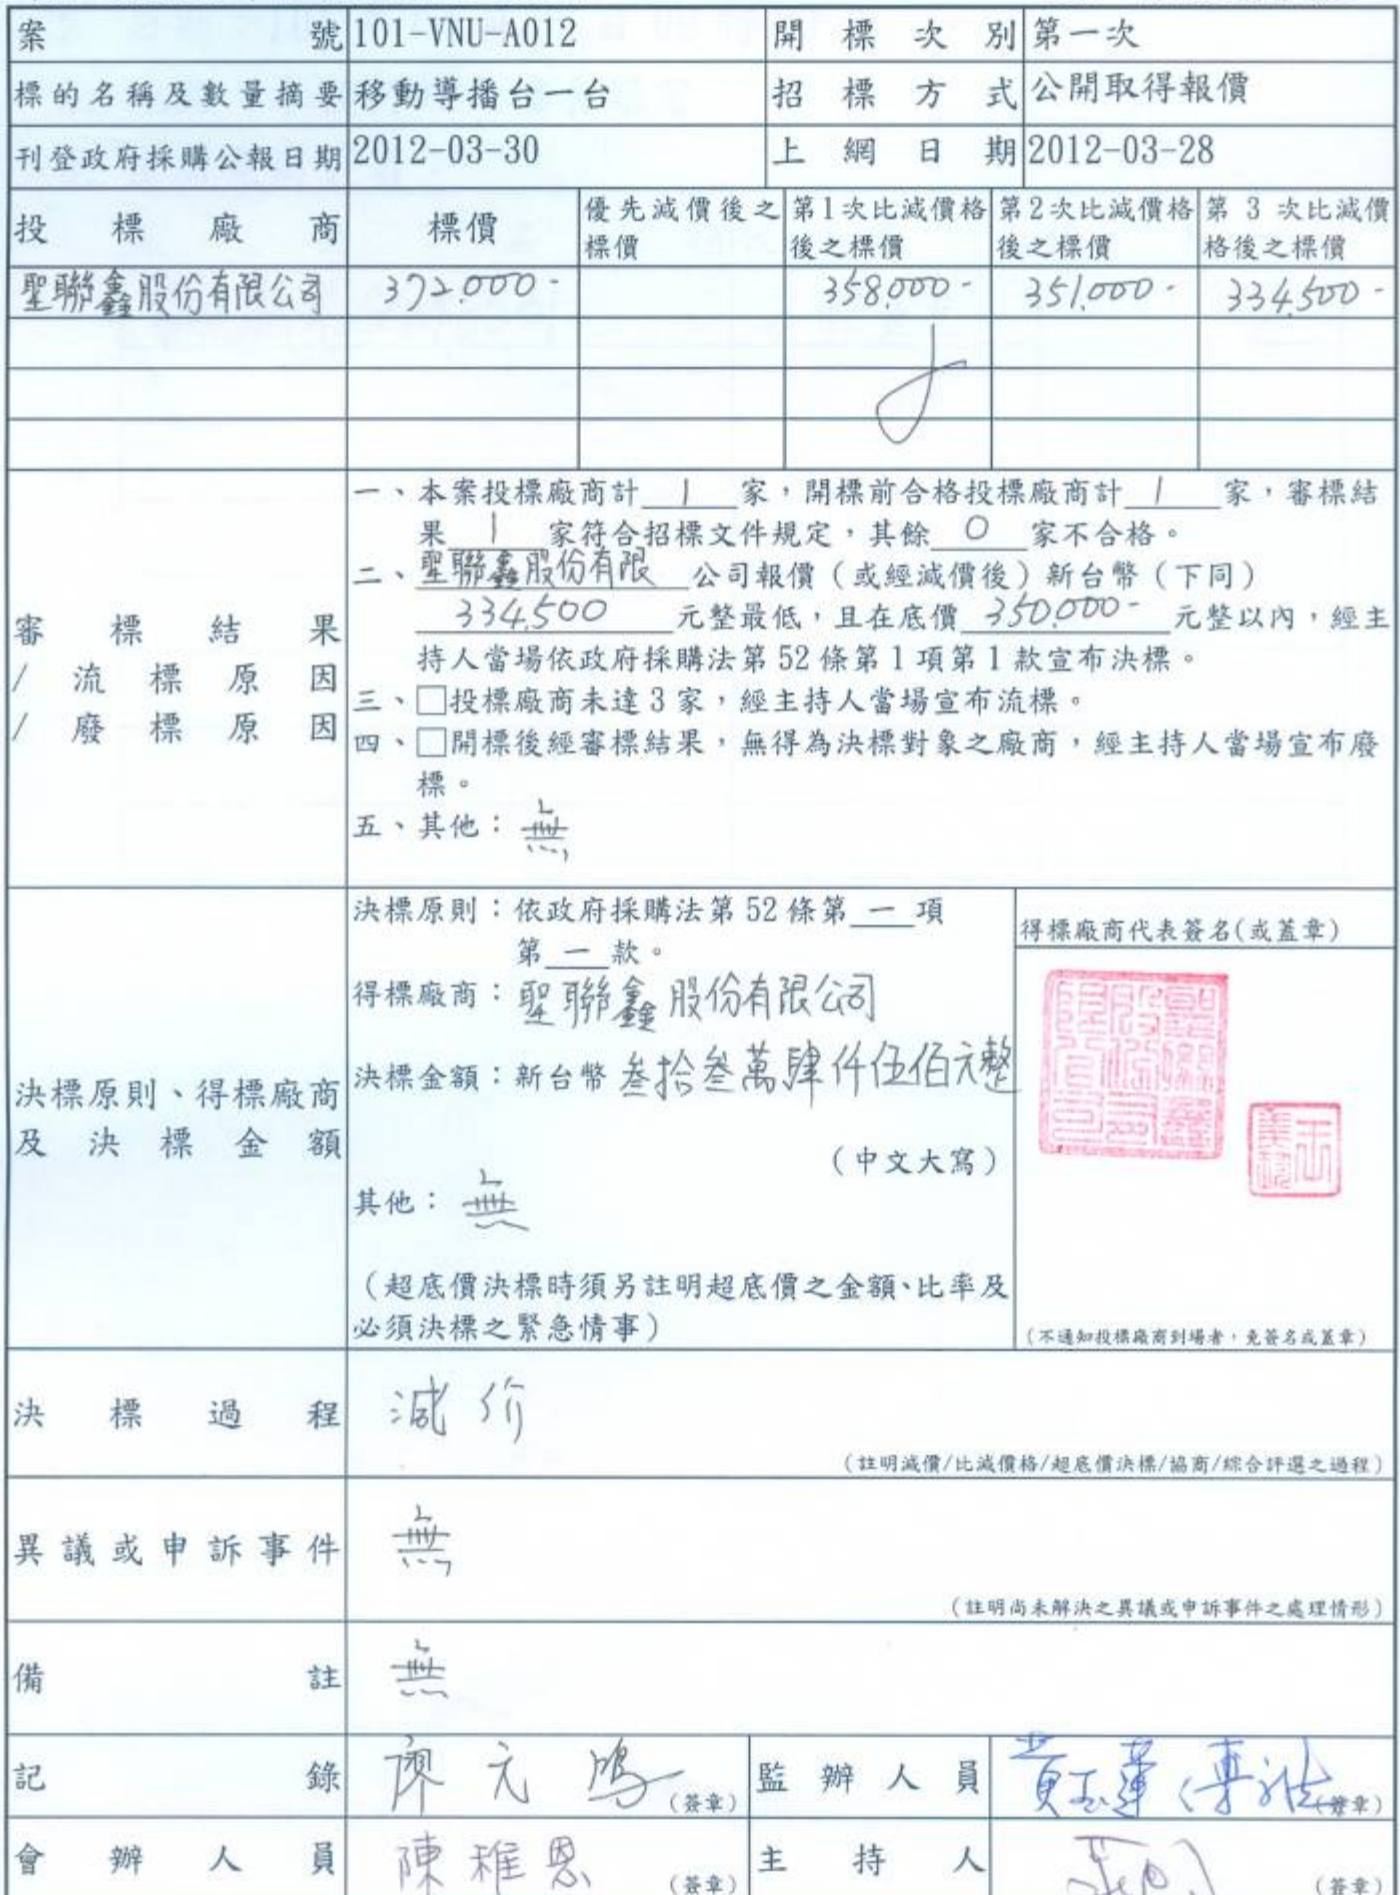 案號 101-VNU-A012 開標次別 第一次
標的名稱及數量摘要 移動導播台一台 招標方式 公開取得報價
刊登政府採購公報日期 2012-03-30 上網日期 2012-03-28
投標廠商 標價 優先減價後之標價 第1次比減價格後之標價 第2次比減價格後之標價 第3次比減價格後之標價
聖聯鑫股份有限公司 372,000- 358,000- 351,000- 334,500-
審標結果
/流標原因
/廢標原因
一、本案投標廠商計 1 家,開標前合格投標廠商計 1 家,審標結
果 1 家符合招標文件規定,其餘 0 家不合格。
二、聖聯鑫股份有限 公司報價(或經減價後)新台幣(下同)
334,500 元整最低,且在底價 350,000- 元整以內,經主
持人當場依政府採購法第52條第1項第1款宣布決標。
三、□投標廠商未達3家,經主持人當場宣布流標。
四、□開標後經審標結果,無得為決標對象之廠商,經主持人當場宣布廢
標。
五、其他:無
決標原則、得標廠商
及決標金額
決標原則:依政府採購法第52條第 一 項
第 一 款。
得標廠商:聖聯鑫股份有限公司
決標金額:新台幣 叁拾叁萬肆仟伍佰元整
(中文大寫)
其他:無
(超底價決標時須另註明超底價之金額、比率及
必須決標之緊急情事)
得標廠商代表簽名(或蓋章)
(不通知投標廠商到場者,免簽名或蓋章)
決標過程 減价
(註明減價/比減價格/超底價決標/協商/綜合評選之過程)
異議或申訴事件 無
(註明尚未解決之異議或申訴事件之處理情形)
備註 無
記錄 廖元鴻 (簽章) 監辦人員 (簽章)
會辦人員 陳稚恩 (簽章) 主持人 (簽章)